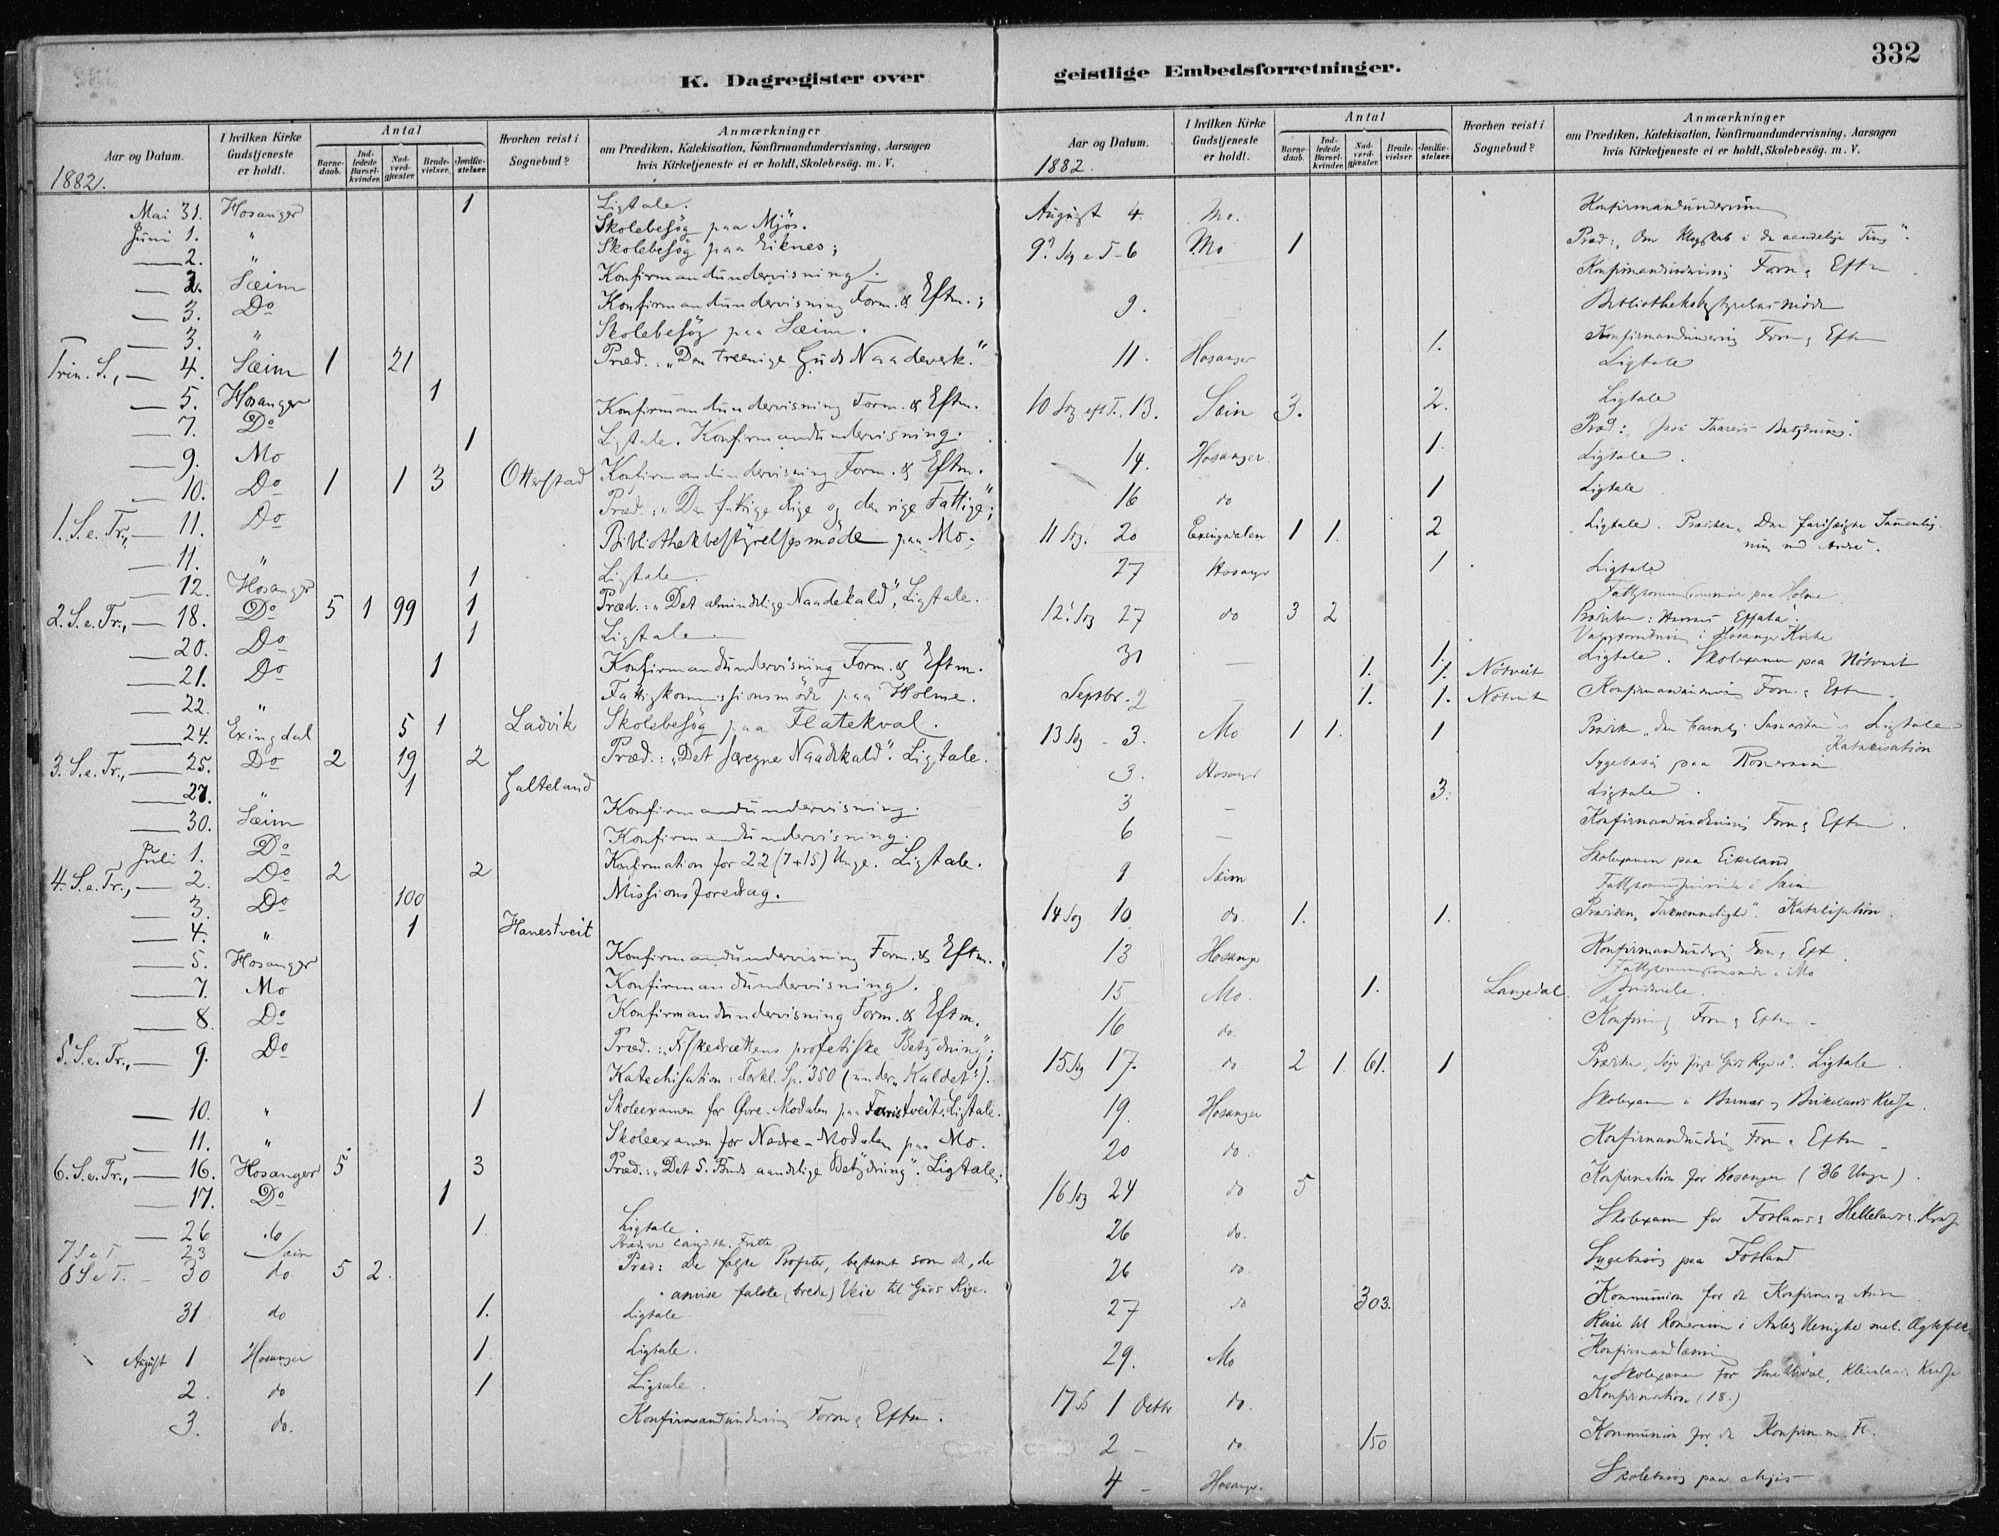 332
K. Dagregister over
geistlige Embedsforretninger.
Aar og Datum.
I hvilken Kirke Gudstjeneste er holdt.
Antal
Barne-daab.
Ind-ledede Barsel-kvinder.
Nad-verd-gjester
Brude-vielser.
Jordfæ-stelser.
Hvorhen reist i Sognebud?
Anmærkninger
om Prædiken, Katekisation, Konfirmandundervisning, Aarsagen
hvis Kirketjeneste ei er holdt, Skolebesög. m. V.
1882.
Mai 31. Hosanger 1 Ligtale.
Juni 1. " Skolebesög paa Mjös.
2. " Skolebesög paa Eiknes;
2. Sæim Konfirmandundervisning.
3. Do Konfirmandundervisning Form. & Eftm.;
3. " Skolebesög paa Sæim.
Trin. S., 4. Sæim 1 21 Præd.: "Den treenige Guds Naadeverk."
5. Hosanger 1
7. Do Konfirmandundervisning Form. & Eftm.
9. Mo 1 Ligtale. Konfirmandundervisning.
10. Do 1 1 3 Otterstad Konfirmandundervisning Form. & Eftm.
1. S. e. Tr., 11. Do Præd.: "Den fattige Rige og den rige Fattige";
11. " Bibliothekbestyrelsesmöde paa Mo.
12. Hosanger 1 Ligtale.
2. S. e. Tr., 18. Do 5 1 99 1 Præd.: "Det almindelige Naadekald", Ligtale.
20. Do 1 Ligtale.
21. Do 1 Konfirmandundervisning Form. & Eftm.
22. " Fattigkommissionsmöde paa Holme.
24. Exingdal 5 1 Ladvik Skolebesög paa Flatekval.
3. S. e. Tr., 25. Do 2 19 2 Præd.: "Det særegne Naadekald". Ligtale.
27. " 1 Galteland
30. Sæim Konfirmandundervisning.
Juli 1. Do Konfirmandundervisning.
4. S. e. Tr., 2. Do 2 2 Konfirmation for 22 (7+15) Unge. Ligtale.
3. Do 100 Missionsforedrag.
4. " 1 Hanestveit
5. Hosanger Konfirmandundervisning Form. & Eftm.
7. Mo Konfirmandundervisning.
8. Do Konfirmandundervisning Form. & Eftm.
5. S. e. Tr., 9. Do Præd.: "Fiskedrættens profetiske Betydning";
Katechisation: Forkl. Sp. 350 (under "Kaldet").
10. " 1 Skoleexamen for Øvre-Modalen paa Farestveit. Ligtale.
11. " Skoleexamen for Nedre-Modalen paa Mo.
6. S. e. Tr., 16. Hosanger 5 3 Præd.: "Det 5. Buds aandelige Betydning". Ligtale.
17. Do 1
26 do 1. Ligtale.
7 S e T 23 Sæim
8 S e T. 30 do 5 2. Præd: De falske Profeter, bestemt som de, der
anvise falske (brede) Veie til Guds Rige.
31 do 1. Ligtale.
August 1 Hosanger 1. Ligtale.
2. do 1 Ligtale.
3. do. Konfirmandundervisning Form & Eftm.
Aar og Datum.
I hvilken Kirke Gudstjeneste er holdt.
Antal
Barne-daab.
Ind-ledede Barsel-kvinder.
Nad-verd-gjester
Brude-vielser.
Jordfæ-stelser.
Hvorhen reist i Sognebud?
Anmærkninger
om Prædiken, Katekisation, Konfirmandundervisning, Aarsagen
hvis Kirketjeneste ei er holdt, Skolebesög. m. V.
1882.
August 4. Mo. Konfirmandundervisn
9. Sg e T - 6 Mo 1 Præd: "Om Klogskab i de aandelige Ting".
Konfirmandundervisning Form & Eftm
9. Bibliotheksbestyrelsesmöde
Konfirmandundervisning Form & Eftm
11. Hosanger 1. Ligtale
10 Sg eft T. 13. Sæim 3. 2. Ligtale
Præd:
14. Hosanger. 1. Ligtale.
16 do 1 Ligtale
11 Sg. 20 Exingdalen 1 1. 2 Ligtale. Prædiken
27 Hosanger 1 Ligtale
Fattigkommissionsmöde paa Holme
12. Sg 27 do 3 2 Prædiken: Effata
Hosanger Kirke
31 1. 1. Nötveit Ligtale. Skolexamen paa Nötveit
Septbr. 2 1. 1. Nötveit Konfirmandundervisning Form & Eftm.
13 Sg - 3. Mo 1 1. 1 Prædiken "den barmhj. Samaritan" Ligtale
Katekisation
3. Hosanger Sygebesög paa
3 - 3. Ligtale.
6 - Konfirmandundervisning Form & Eftm.
9 Sæim Skolexamen paa Eikeland
i Sæim
14 Sg 10. do. 1. 1. Prædiken "Taknemmelighed". Katekisation.
13 Hosanger Konfirmandundervisning Form & Eft.
i Mo
15 Mo. 1. Langedal.
16 do. Form & Eftm -
15 Sg 17. do 2 1. 61. 1 Prædiken Ligtale.
19. Hosanger Skolexamen i
20 do. Konfirmandundervisning Form & Eftm -
16 Sg 24 do 5 Konfirmation for Hosanger (36 Unge).
26 do. Skolexamen for Fosland & Hellelands Kredse
26 do. Sygebesög paa Fosland
27 do 303. Kommunion for de Konfirm. og Andre
Reise til
29. Mo Konfirmandlæsning
Skolexamen for
17 S 1 Octbr do. Konfirmation (18.)
2 - do. 150 Kommunion for de Konfirm. m. Fl.
4 - Hosanger. Skolebesög paa Mjös